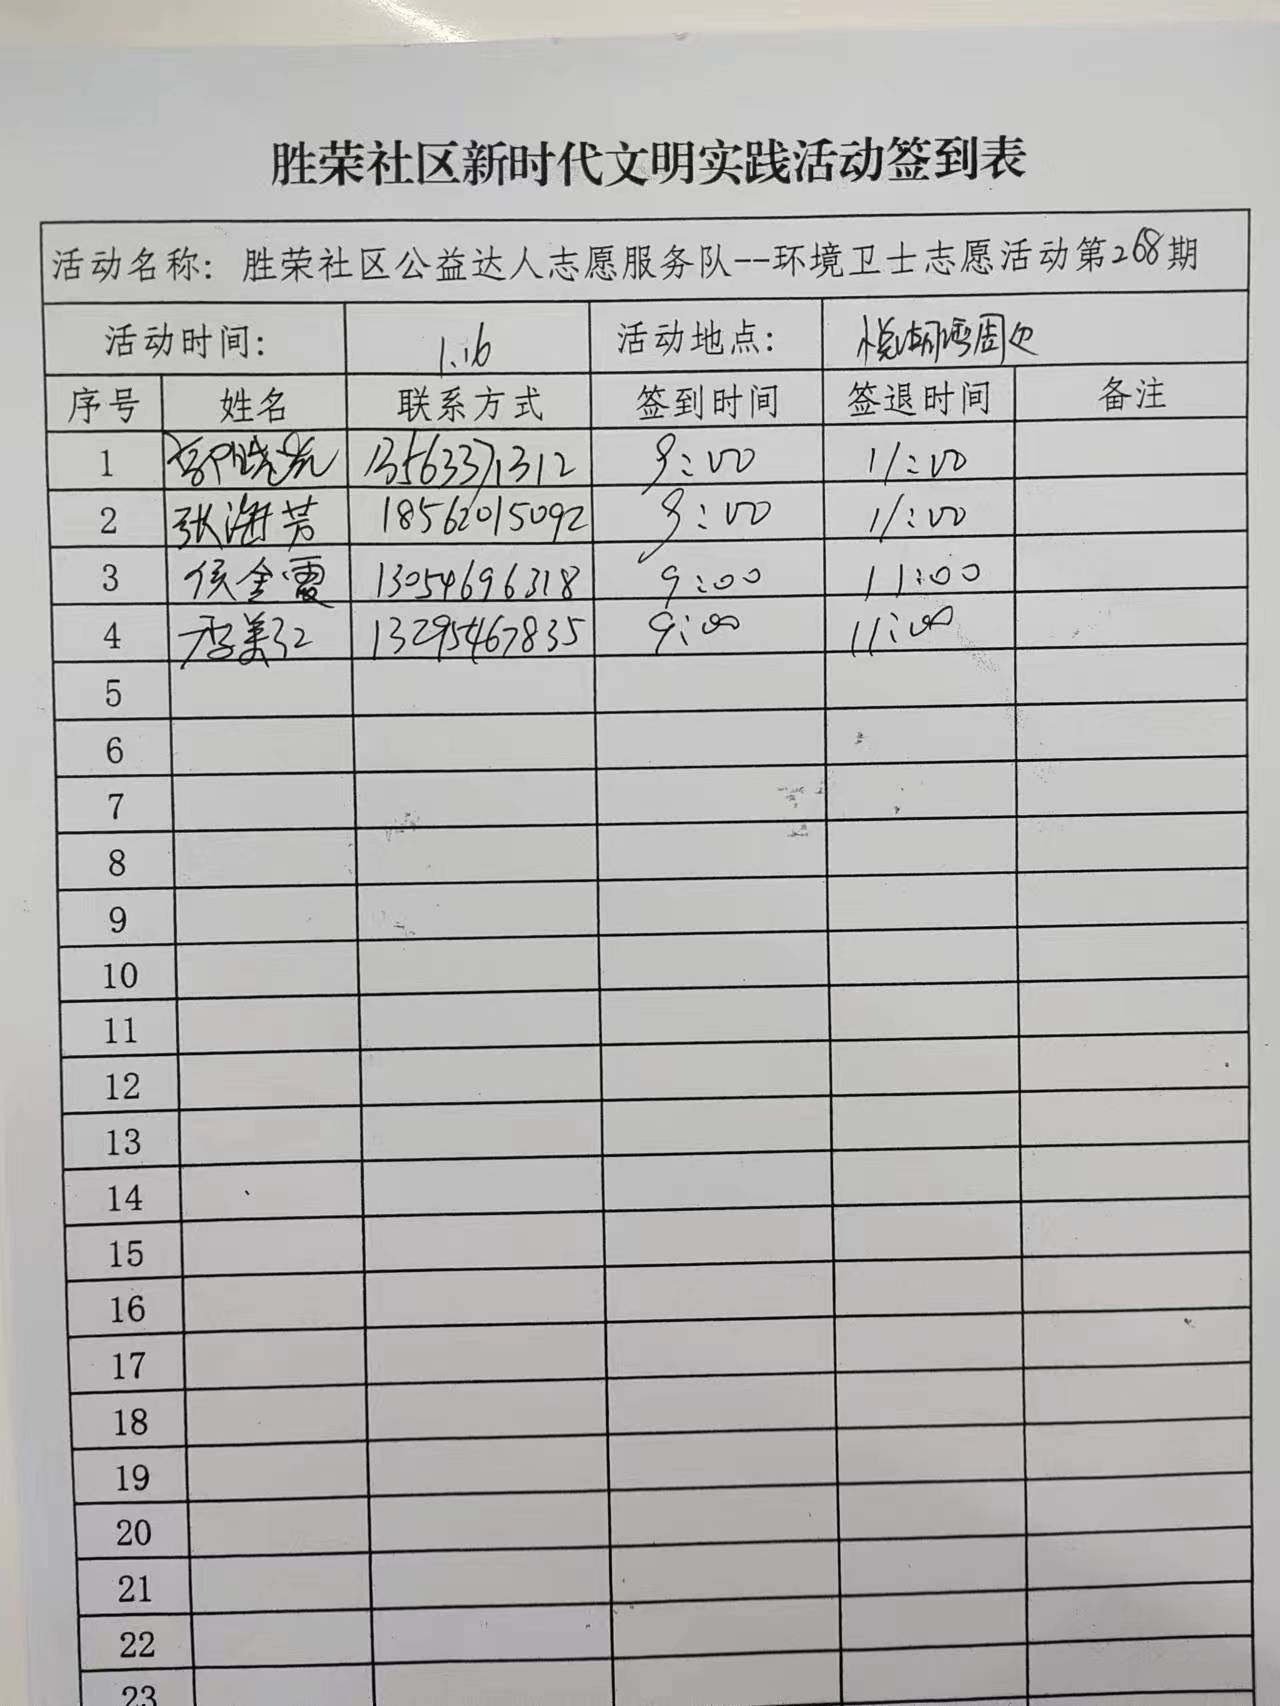 胜荣社区新时代文明实践活动签到表
活动名称：胜荣社区公益达人志愿服务队--环境卫士志愿活动第268期
活动时间： 1.16 活动地点： 悦湖湾周边
序号 姓名 联系方式 签到时间 签退时间 备注
1 13563371312 9:00 11:00
2 张海芳 18562015092 9:00 11:00
3 侯金霞 13054696318 9:00 11:00
4 李美江 13295467835 9:00 11:00
5
6
7
8
9
10
11
12
13
14
15
16
17
18
19
20
21
22
23